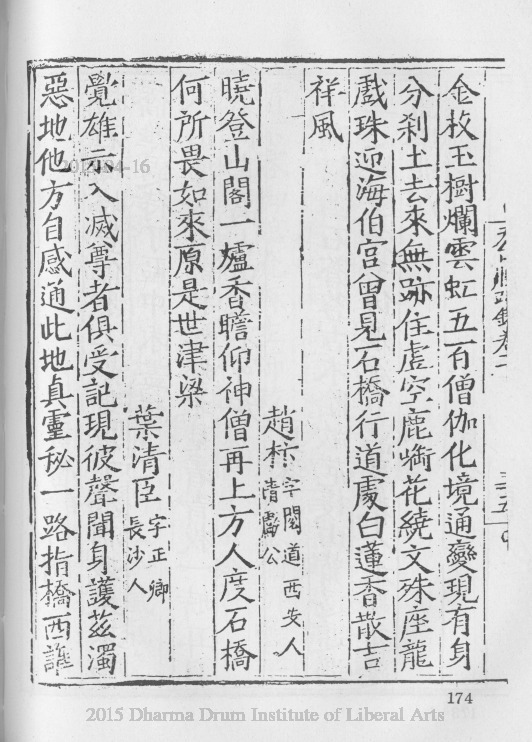 金枝玉樹爛雲虹五百僧伽化境通變現有身
分刹土去來無跡住虛空鹿啣花繞文殊座龍
戲珠迎海伯宮曾見石橋行道處白蓮香散吉
祥風
趙抃字閱道西安人
清獻公
曉登山閣一爐香瞻仰神僧再上方人度石橋
何所畏如來原是世津梁
葉清臣字正卿
長沙人
覺雄示入滅尊者俱受記現彼聲聞身護茲濁
惡地他方自感通此地真靈秘一路指橋西
卷一
174
2015 Dharma Drum Institute of Liberal Arts